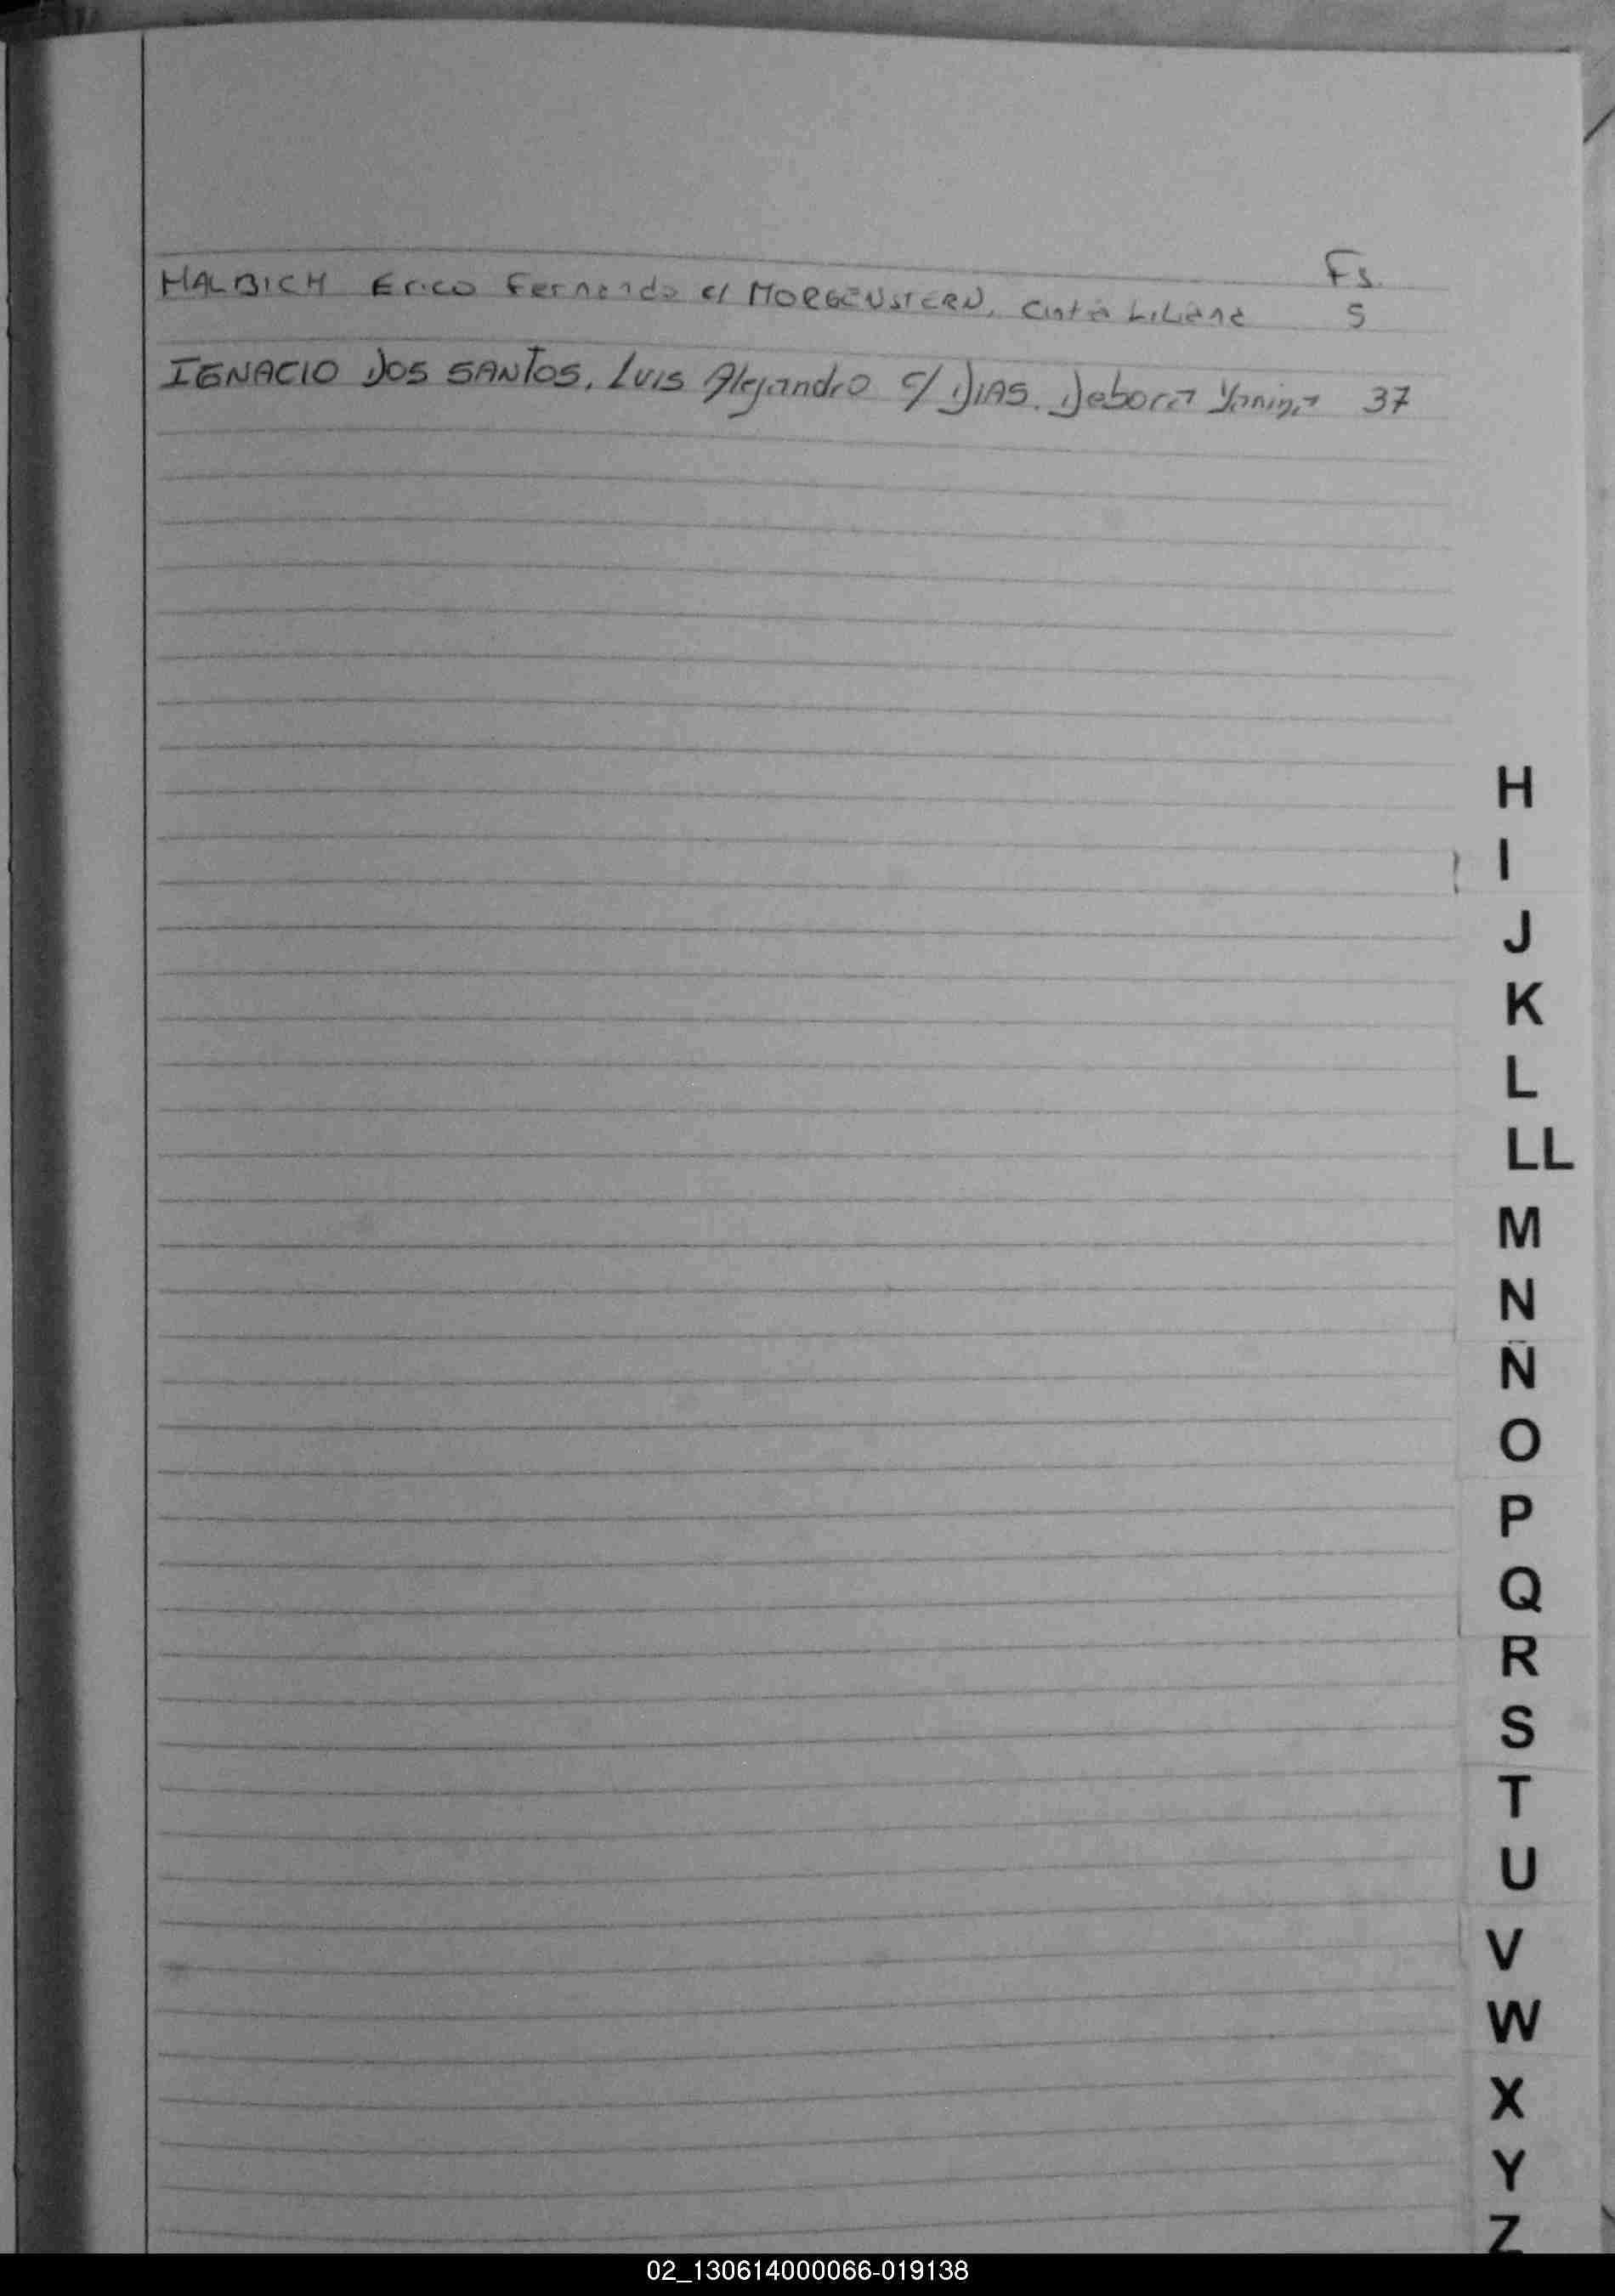 Fs.
HALBICH Erico Fernando c/ MORGENSTERN, Cintia Liliana 5
IGNACIO DOS SANTOS, Luis Alejandro c/ DIAS. Debora Yanina 37
H
I
J
K
L
LL
M
N
Ñ
O
P
Q
R
S
T
U
V
W
X
Y
Z
02_130614000066-019138